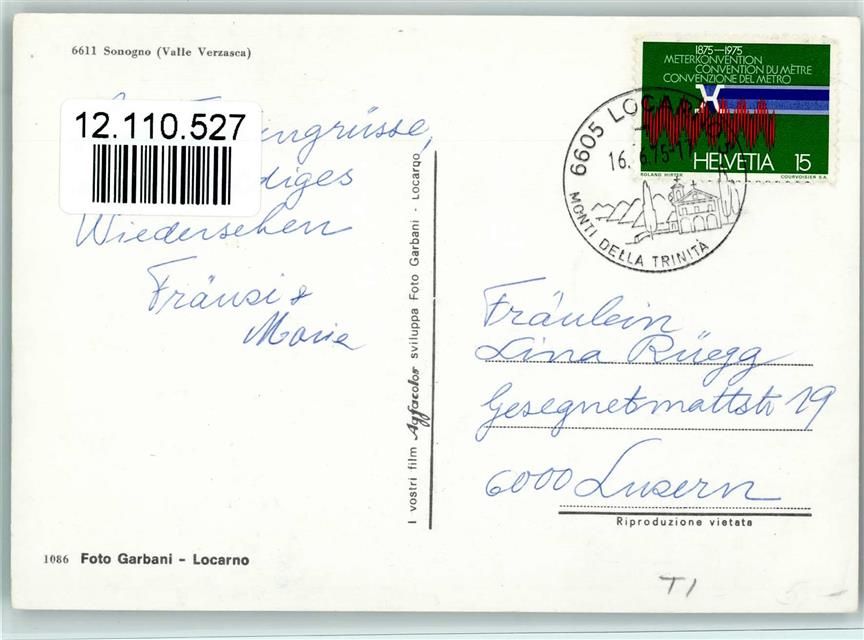 6611 Sonogno (Valle Verzasca)
12.110.527
ngrüsse,
diges
Wiedersehen
Fränzi &
Marie
I vostri film Agfacolor sviluppa Foto Garbani - Locarno
1086 Foto Garbani - Locarno
1875-1975
METERKONVENTION
CONVENTION DU MÈTRE
CONVENZIONE DEL METRO
HELVETIA 15
ROLAND HIRTER COURVOISIER S.A.
6605 LOCARNO
16. 6.75-1
MONTI DELLA TRINITÀ
Fräulein
Lina Rüegg
Gesegnetmattstr 19
6000 Luzern
Riproduzione vietata
T1
5.-